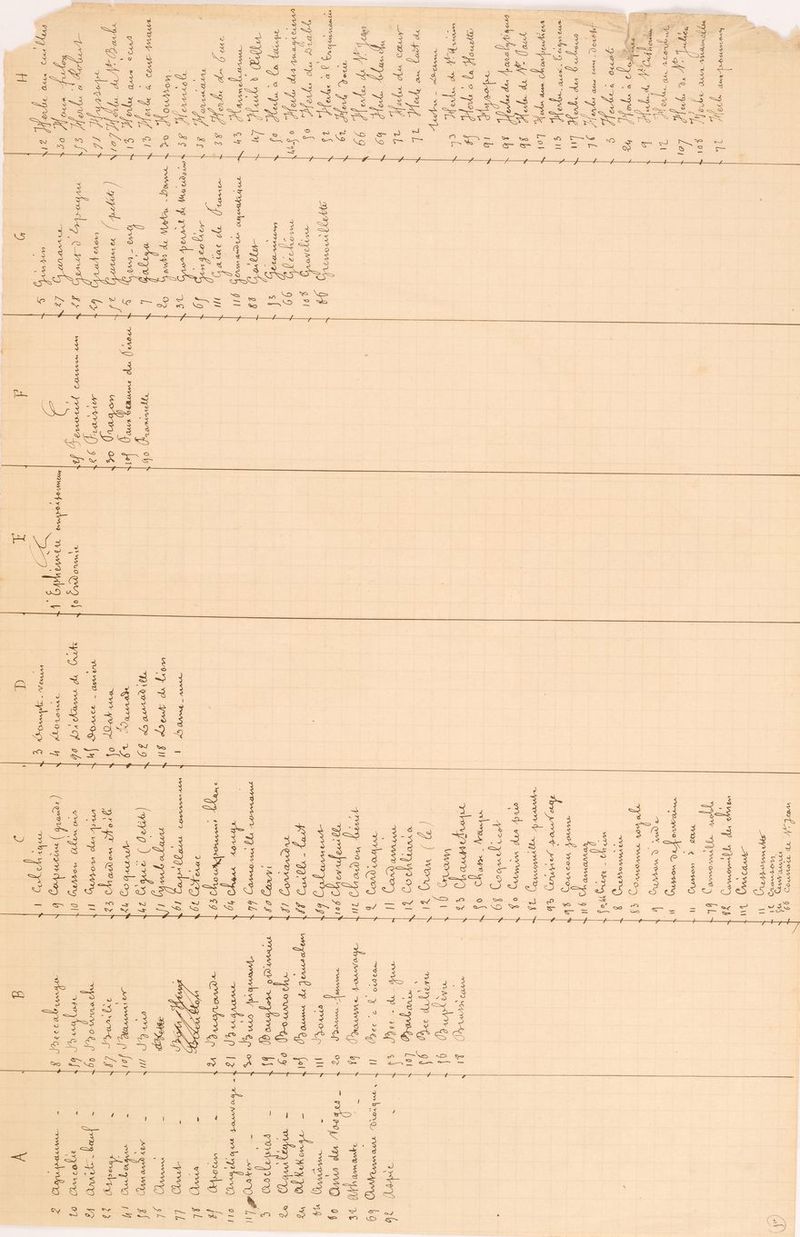 A
2 Agripaume
20 Ancolie
21 Arrête-bœuf
22 Asperge
41 Aubépine
58 Amandier
76 Ammi
77 Anet
78 Anis
85 Apocin
110 Angélique sauvage
117 Aster
3 Asclepias
20 Aquilegia
24 Alkekenge
64 Armoise
80 Anis des Vosges
32 Athamante
69 Antennaire dioïque
92 Aspic
B
8 Beccabunga
59 Buglose
60 Bourrache
87 Basilic
105 Baumier
111 Buis
21 Bugrande
21 Bugrane
30 Buis piquant
59 Buglose ordinaire
60 Bourroche
105 Baume de Jerusalem
111 Bouis
20 Bonne-femme
89 Baume sauvage
11 Bec à l'oiseau
53 Bec-de-grue
107 Barbarée
56 Bec de lièvre
56 Buplèvre
18 Brussicaire
C
1 Colchique
9 Capucine (grande)
10 Cresson alénois
11 Cresson des prés
23 Chardon étoilé
24 Coqueret
42 Ciguë (Petite)
51 Cymbalaire
61 Capillaire commun
62 Céterac
63 Chou pommé blanc
64 Chou rouge
79 Camomille romaine
80 Carvi
81 Coriandre
88 Caille-lait
89 Calament
106 Chèvrefeuille
112 Chardon bénit
2 Cardiaque
11 Cardamine
12 Cochléaria
12 Cran (le)
16 Cumin
23 Chaussetrape
50 Chasse-taupe
68 Coquelicot
80 Cumin des prés
82 Camomille puante
93 Cerisier sauvage
98 Coucou jaune
116 Chamaras
8 Cressonnière
83 Couronne royale
9 Cresson d'inde
11 Cresson de fontaine
11 Cresson d'eau
79 Camomille noble
82 Camomille des chiens
112 Cnicaut
11 Cressonnette
12 Cranson
66 Couronne de St Jean
D
3 Dompte-venin
4 Doronic
90 Dictame de Crète
45 Douce-amère
50 Datura
62 Daurade
62 Dauradille
118 Dent de lion
1 Dame-nue
E
1 Ephémère empoisonneur
50 Endormie
F
25 Fenouil commun
26 Fraisier
30 Fragon
105 Faux baume du Pérou
90 Fraxinelle
G
5 Ginsin
27 Garance
28 Genet d'Espagne
29 Grateron
52 Garance (petite)
5 Gens-eng
7 Galega
20 Gants de Notre-Dame
32 Gros persil de Macédoine
65 Gingeolier
111 Gaïac de France
116 Germandrée aquatique
88 Gaillet
53 Geranium
66 Gléchome
108 Graveline
86 Grenouillette
H
12 Herbe aux cuillers
30 Houx frelon
53 Herbe à Robert
91 Hyssope
107 Herbe de Ste Barbe
13 Herbe aux écus
13 Herbe à cent maux
30 Housson
38 Herniole
38 Herniaire
38 Herbe du Turc
43 Hammelieanne
47 Herbe d'Aller
50 Herbe à la taupe
50 Herbe des magiciens
50 Herbe du Diable
52 Herbe à l'esquinancie
62 Herbe dorée
66 Herbe de St Jean
69 Herbe blanche
72 Herbe du cœur
72 Herbe au lait de Notre-Dame
73 Herbe de St Quirin
85 Herbe à la Houette
91 Hyzope
98 Herbe des paralytiques
98 Herbe de St Paul
107 Herbe aux charpentiers
113 Herbe aux teigneux
117 Herbe des buttons
76 Herbe aux cure-dents
3 Herbe à ouate
24 Herbe à cloques
12 Herbe au scorbut
107 Herbe de Ste Julienne
108 Herbe aux mamelles
72 Herbe aux poumons